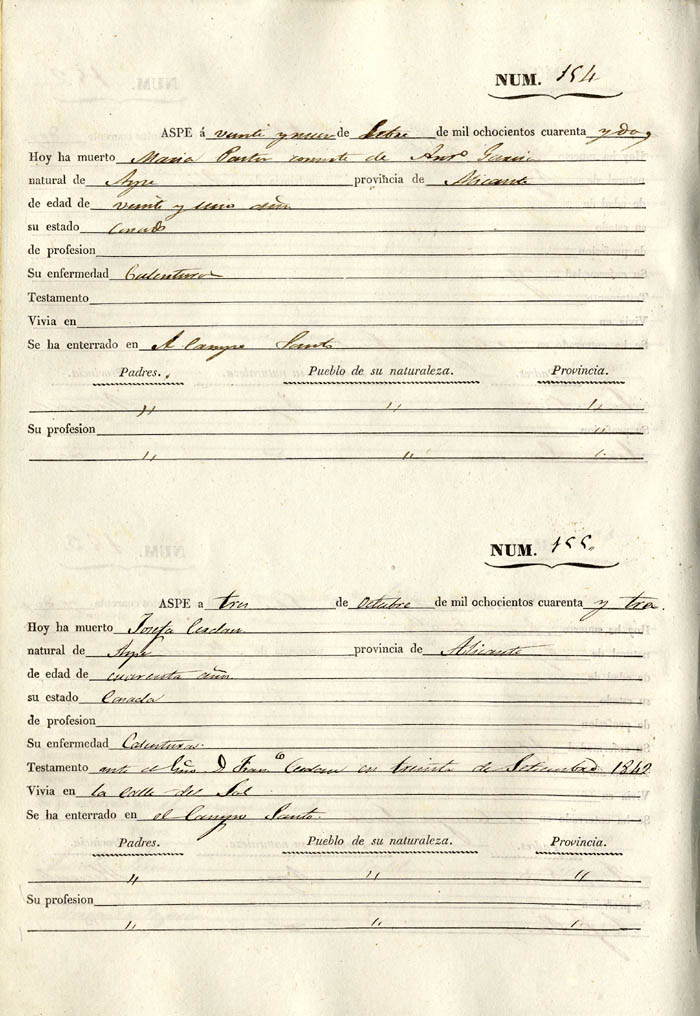 NUM. 154
ASPE á veinte y nueve de Setbre de mil ochocientos cuarenta y dos
Hoy ha muerto Maria Pastor consorte de Anto Garcia
natural de Aspe provincia de Alicante
de edad de veinte y uno años
su estado Casada
de profesion
Su enfermedad Calentura
Testamento
Vivia en
Se ha enterrado en el Campo Santo
Padres. Pueblo de su naturaleza. Provincia.
" " "
Su profesion "
" " "
NUM. 155.
ASPE a tres de Octubre de mil ochocientos cuarenta y tres.
Hoy ha muerto Josefa Cerdan
natural de Aspe provincia de Alicante
de edad de cuarenta años
su estado Casada
de profesion
Su enfermedad Calenturas.
Testamento ante el Esno D. Franco Cerdan en treinta de Setiembre 1842
Vivia en la Calle del Sol
Se ha enterrado en el Campo Santo.
Padres. Pueblo de su naturaleza. Provincia.
" " "
Su profesion
" " "